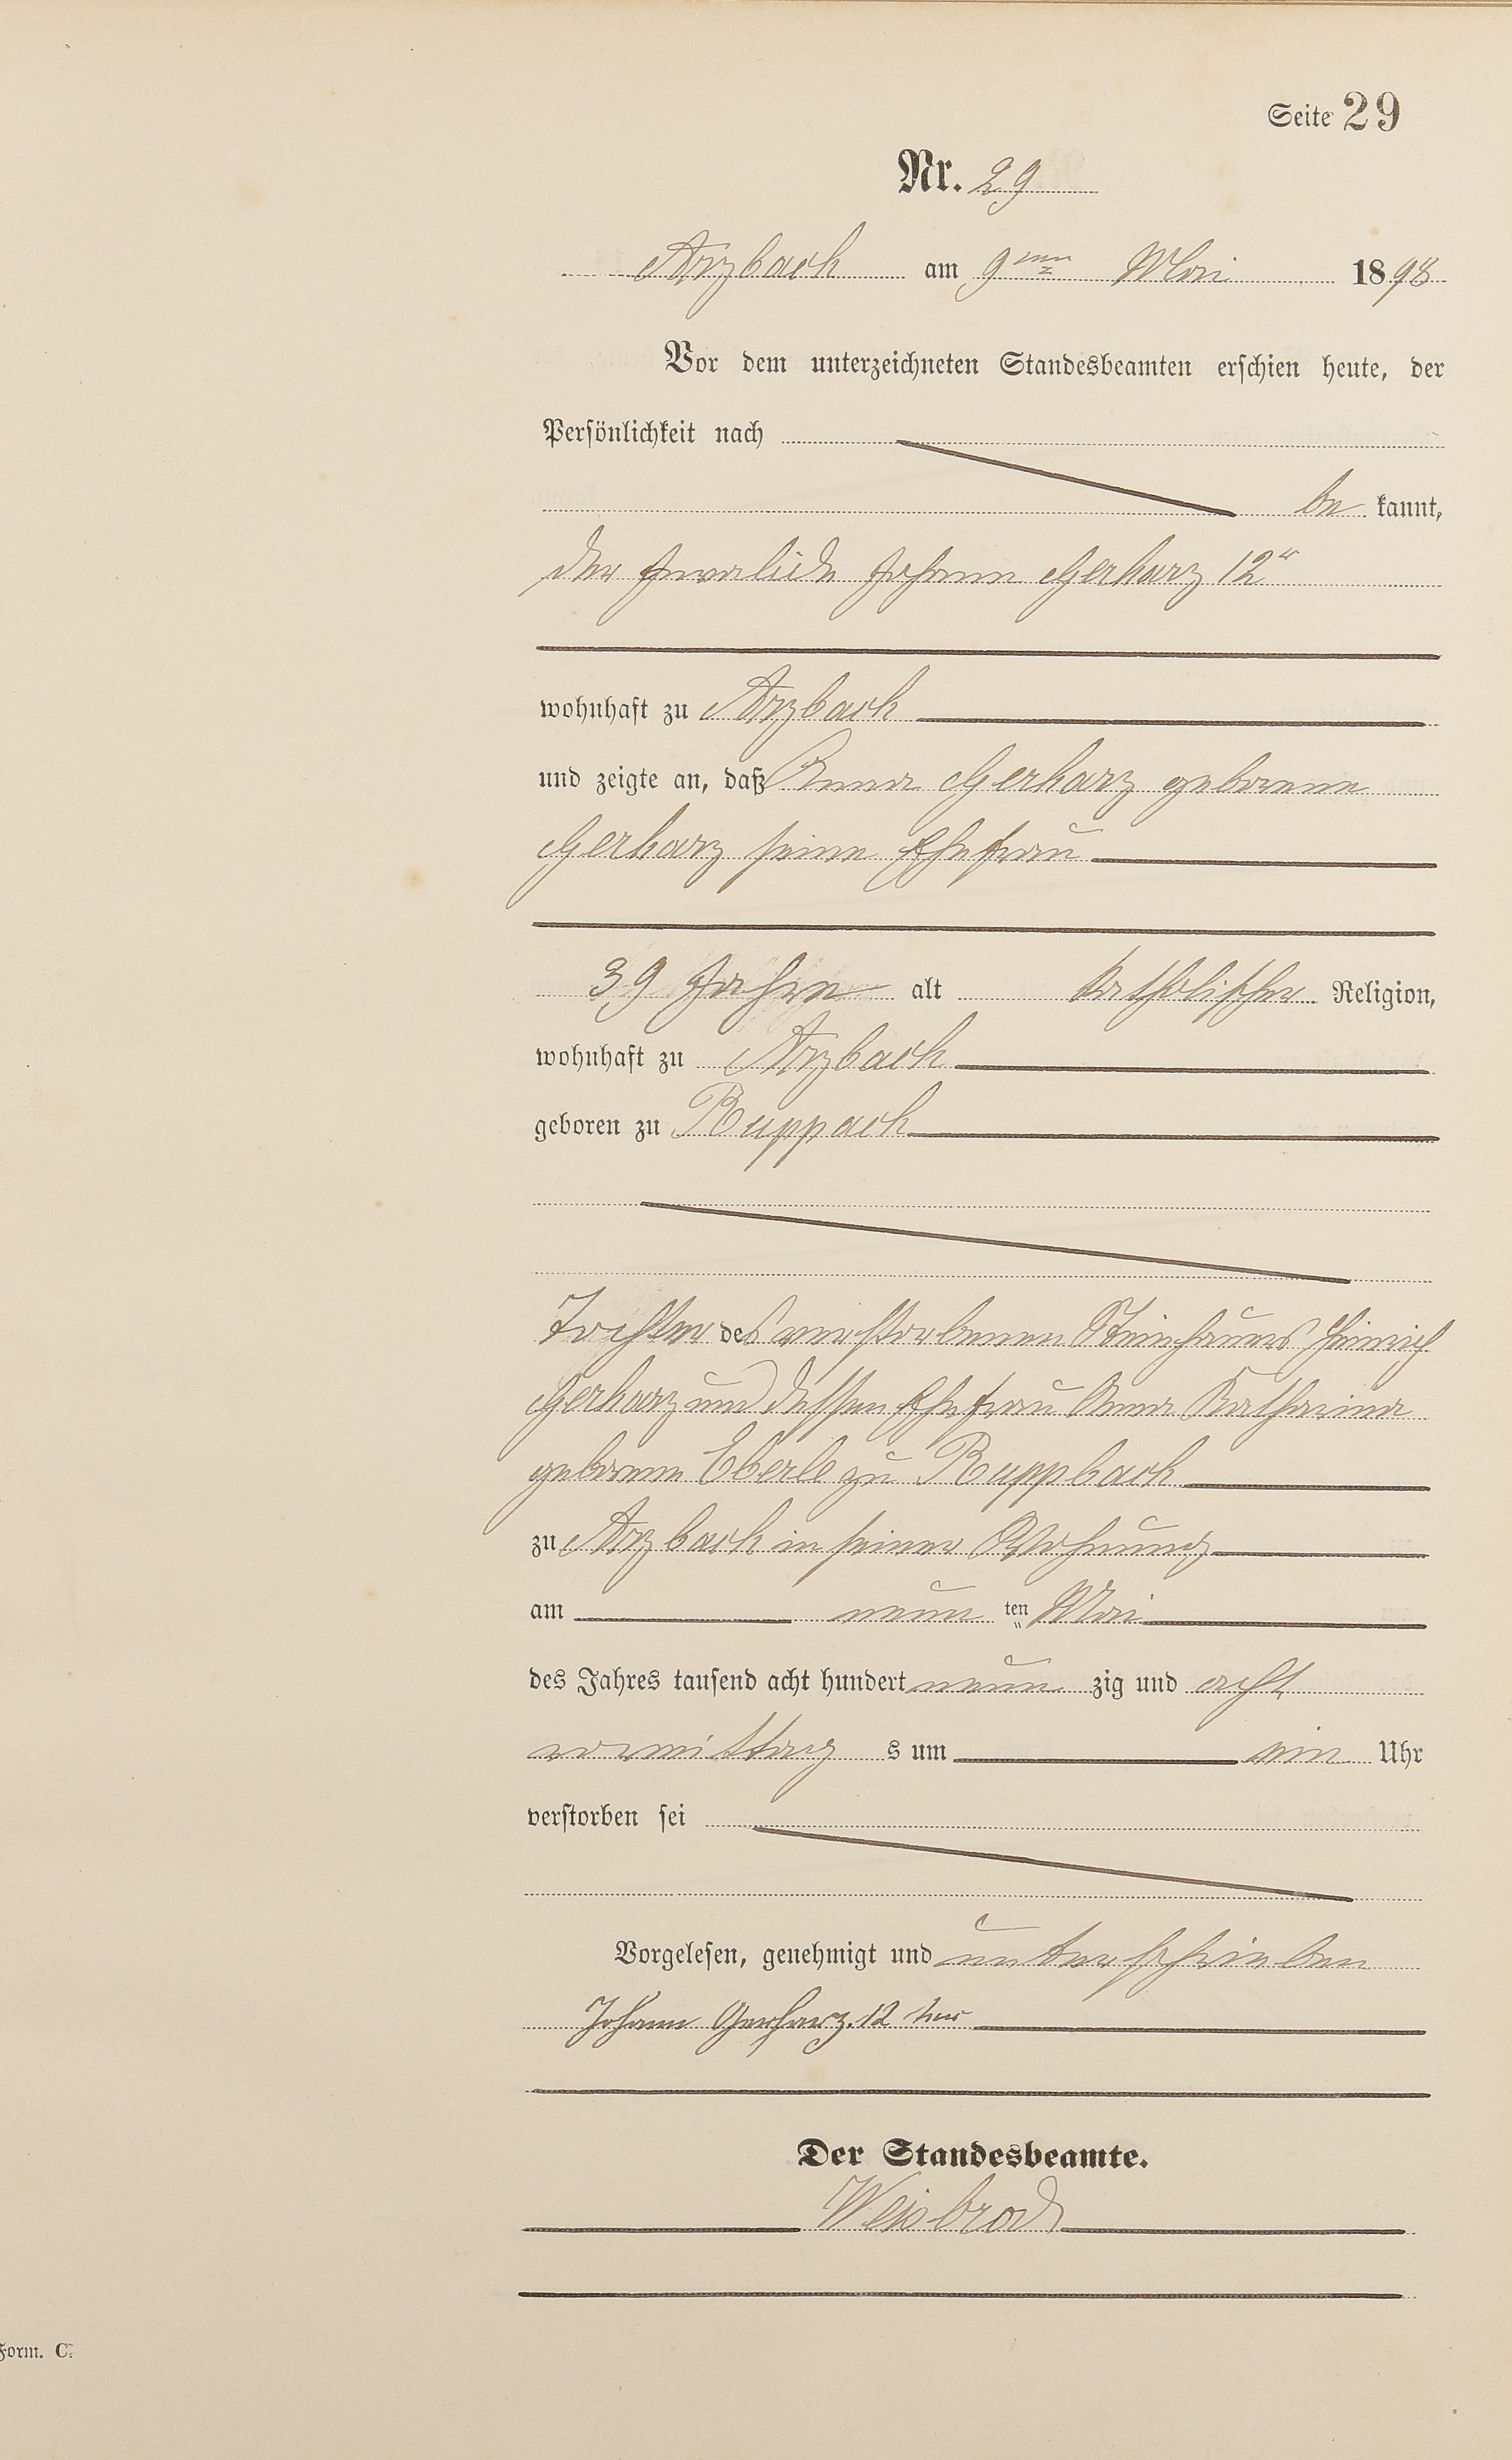 Seite 29
Nr. 29
Arzbach am 9ten Mai 1898
Vor dem unterzeichneten Standesbeamten erschien heute, der
Persönlichkeit nach
be kannt,
der Invalide Johann Gerharz 12r
wohnhaft zu Arzbach
und zeigte an, daß Anna Gerharz geborene
Gerharz seine Ehefrau
39 Jahre alt katholischer Religion,
wohnhaft zu Arzbach
geboren zu Ruppach
Tochter des verstorbenen Steinhauers Heinrich
Gerharz und dessen Ehefrau Anna Katharina
geborene Eberle zu Ruppbach
zu Arzbach in seiner Wohnung
am neun ten Mai
des Jahres tausend acht hundert neun zig und acht
vormittag s um ein Uhr
verstorben sei
Vorgelesen, genehmigt und unterschrieben
Johann Gerharz. 12 ter
Der Standesbeamte.
Weisbrod
Form. C.